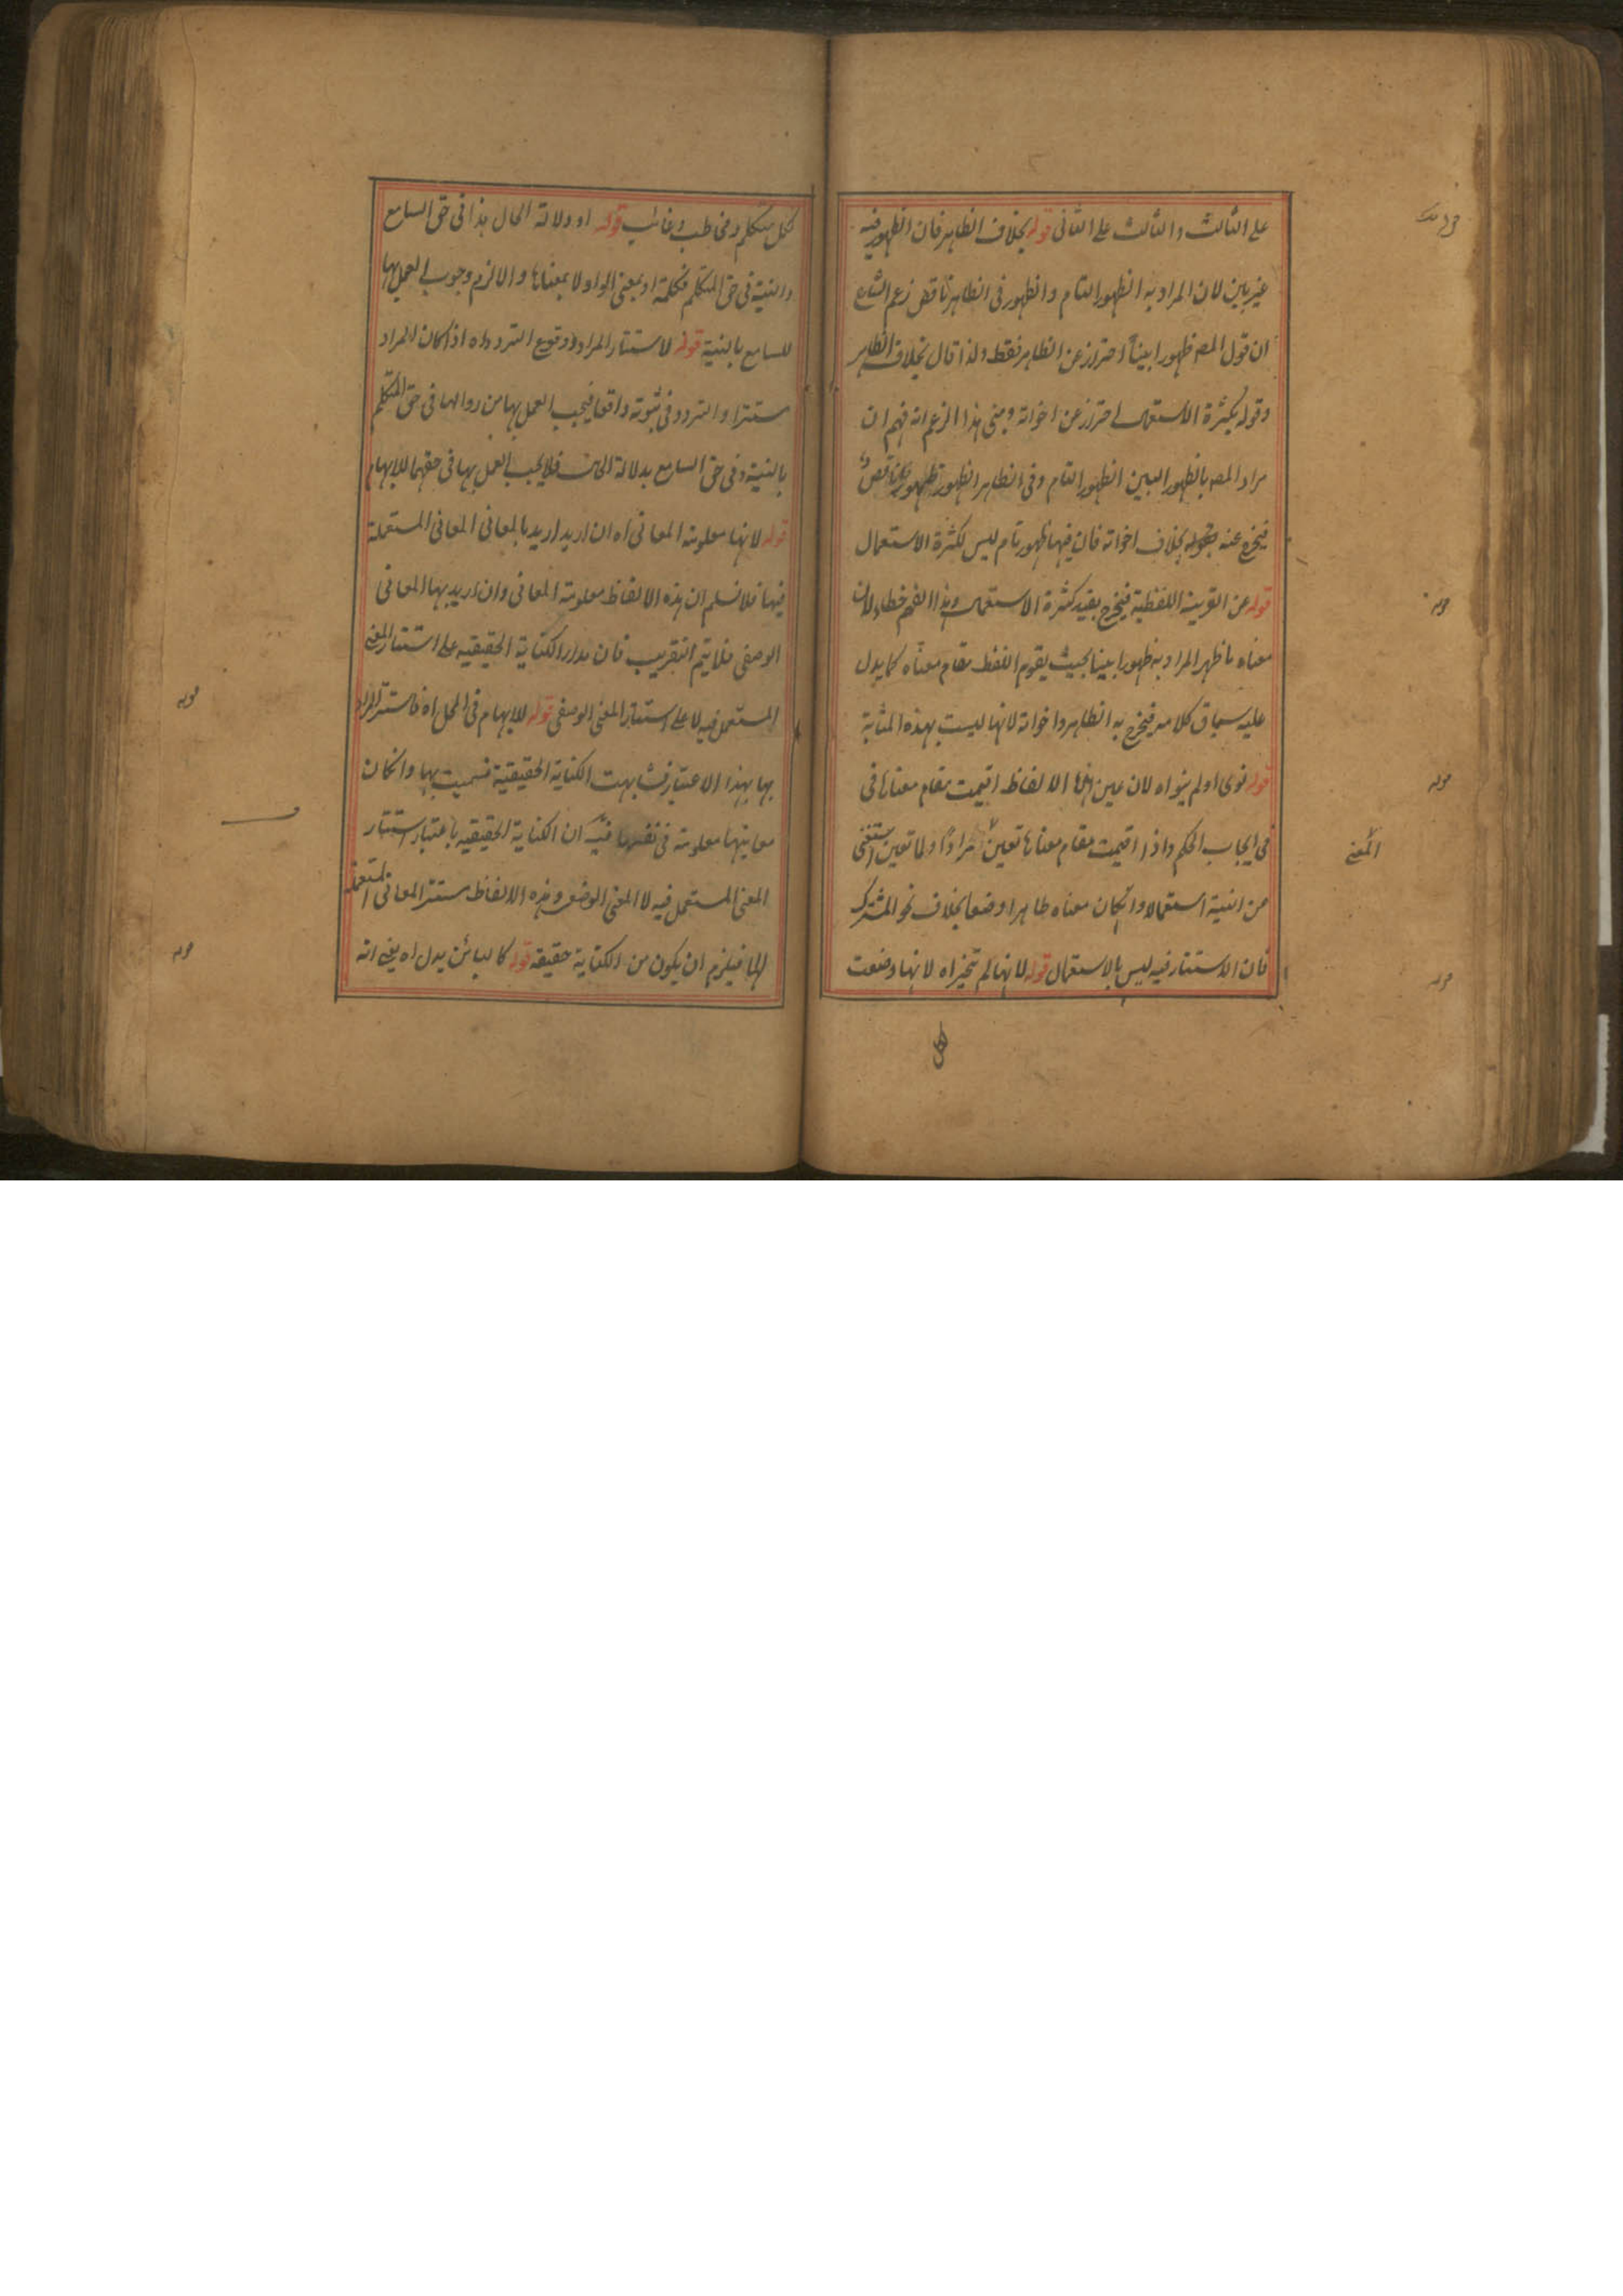 على الثالث والثالث على الثانى قوله بخلاف الظاهر فان الظهور فيه
غير باين لان المراد به الظهور التام والظهور فى الظاهر ناقص زعم الشارح
ان قول المصـ ظهورا بينا احتراز عن الظاهر فقط ولذا قال بخلاف الظاهر
وقوله بكثرة الاستعمال احتراز عن اخواته ومبنى هذا الزعم انه فهم ان
مراد المصـ بالظهور البين الظهور التام وفى الظاهر الظهور ناقص
فيخرج عنه بخلاف اخواته فان فيها ظهور تام ليس لكثرة الاستعمال
قوله عن القرينة اللفظية فيخرج بقيد كثرة الاستعمال وهذا الفهم خطاء لان
معناه ما ظهر المراد به ظهورا بينا بحيث يقوم اللفظ مقام معناه كما يدل
عليه سياق كلامه فيخرج به الظاهر واخواته لانها ليست بهذه المثابة
قوله نوى اولم ينواه لان عين الالفاظ اقيمت مقام معناها فى
فى ايجاب الحكم واذا اقيمت مقام معناها تعين مرادا ولما تعين استغنى
المعنى
من النية استعمالا وانكان معناه ظاهرا وضعا بخلاف نحو المشترك
فان الاستتار فيه ليس بالاستعمال قوله لانها لم تميز اه لانها وضعت
لكل
لكل متكلم ومخاطب وغائب قوله او دلالة الحال هذا فى حق السامع
والنية فى حق المتكلم فكلمة او بمعنى الواو لا بمعناها والا لزم وجوب العمل بها
للسامع بالنية قوله لاستتار المراد ووقوع التردد اه اذا كان المراد
مستترا والتردد فى ثبوته واقعا فيجب العمل بها من زوالها فى حق المتكلم
بالنية وفى حق السامع بدلالة الحال فلا يجب العمل بها فى حقهما للابهام
قوله لانها معلومة المعانى اه ان اريد اريد بالمعانى المعانى المستعملة
فيها فلا نسلم ان هذه الالفاظ معلومة المعانى وان اريد بها المعانى
الوصفى فلا يتم التقريب فان مدار الكناية الحقيقية على استتار المعنى
المستعمل فيه لا على استتار المعنى الوصفى قوله للابهام فى المحل اه فاستتر المراد
بها بهذا الاعتبار فشابهت الكناية الحقيقية فسميت بها وانكان
معانيها معلومة فى نفسها فيه ان الكناية الحقيقية باعتبار استتار
المعنى المستعمل فيه لا المعنى الوضعى وهذه الالفاظ مستتر المعانى المستعملة
لها فيلزم ان يكون من الكناية حقيقة قوله كالبائن يدل اه يعنى انه